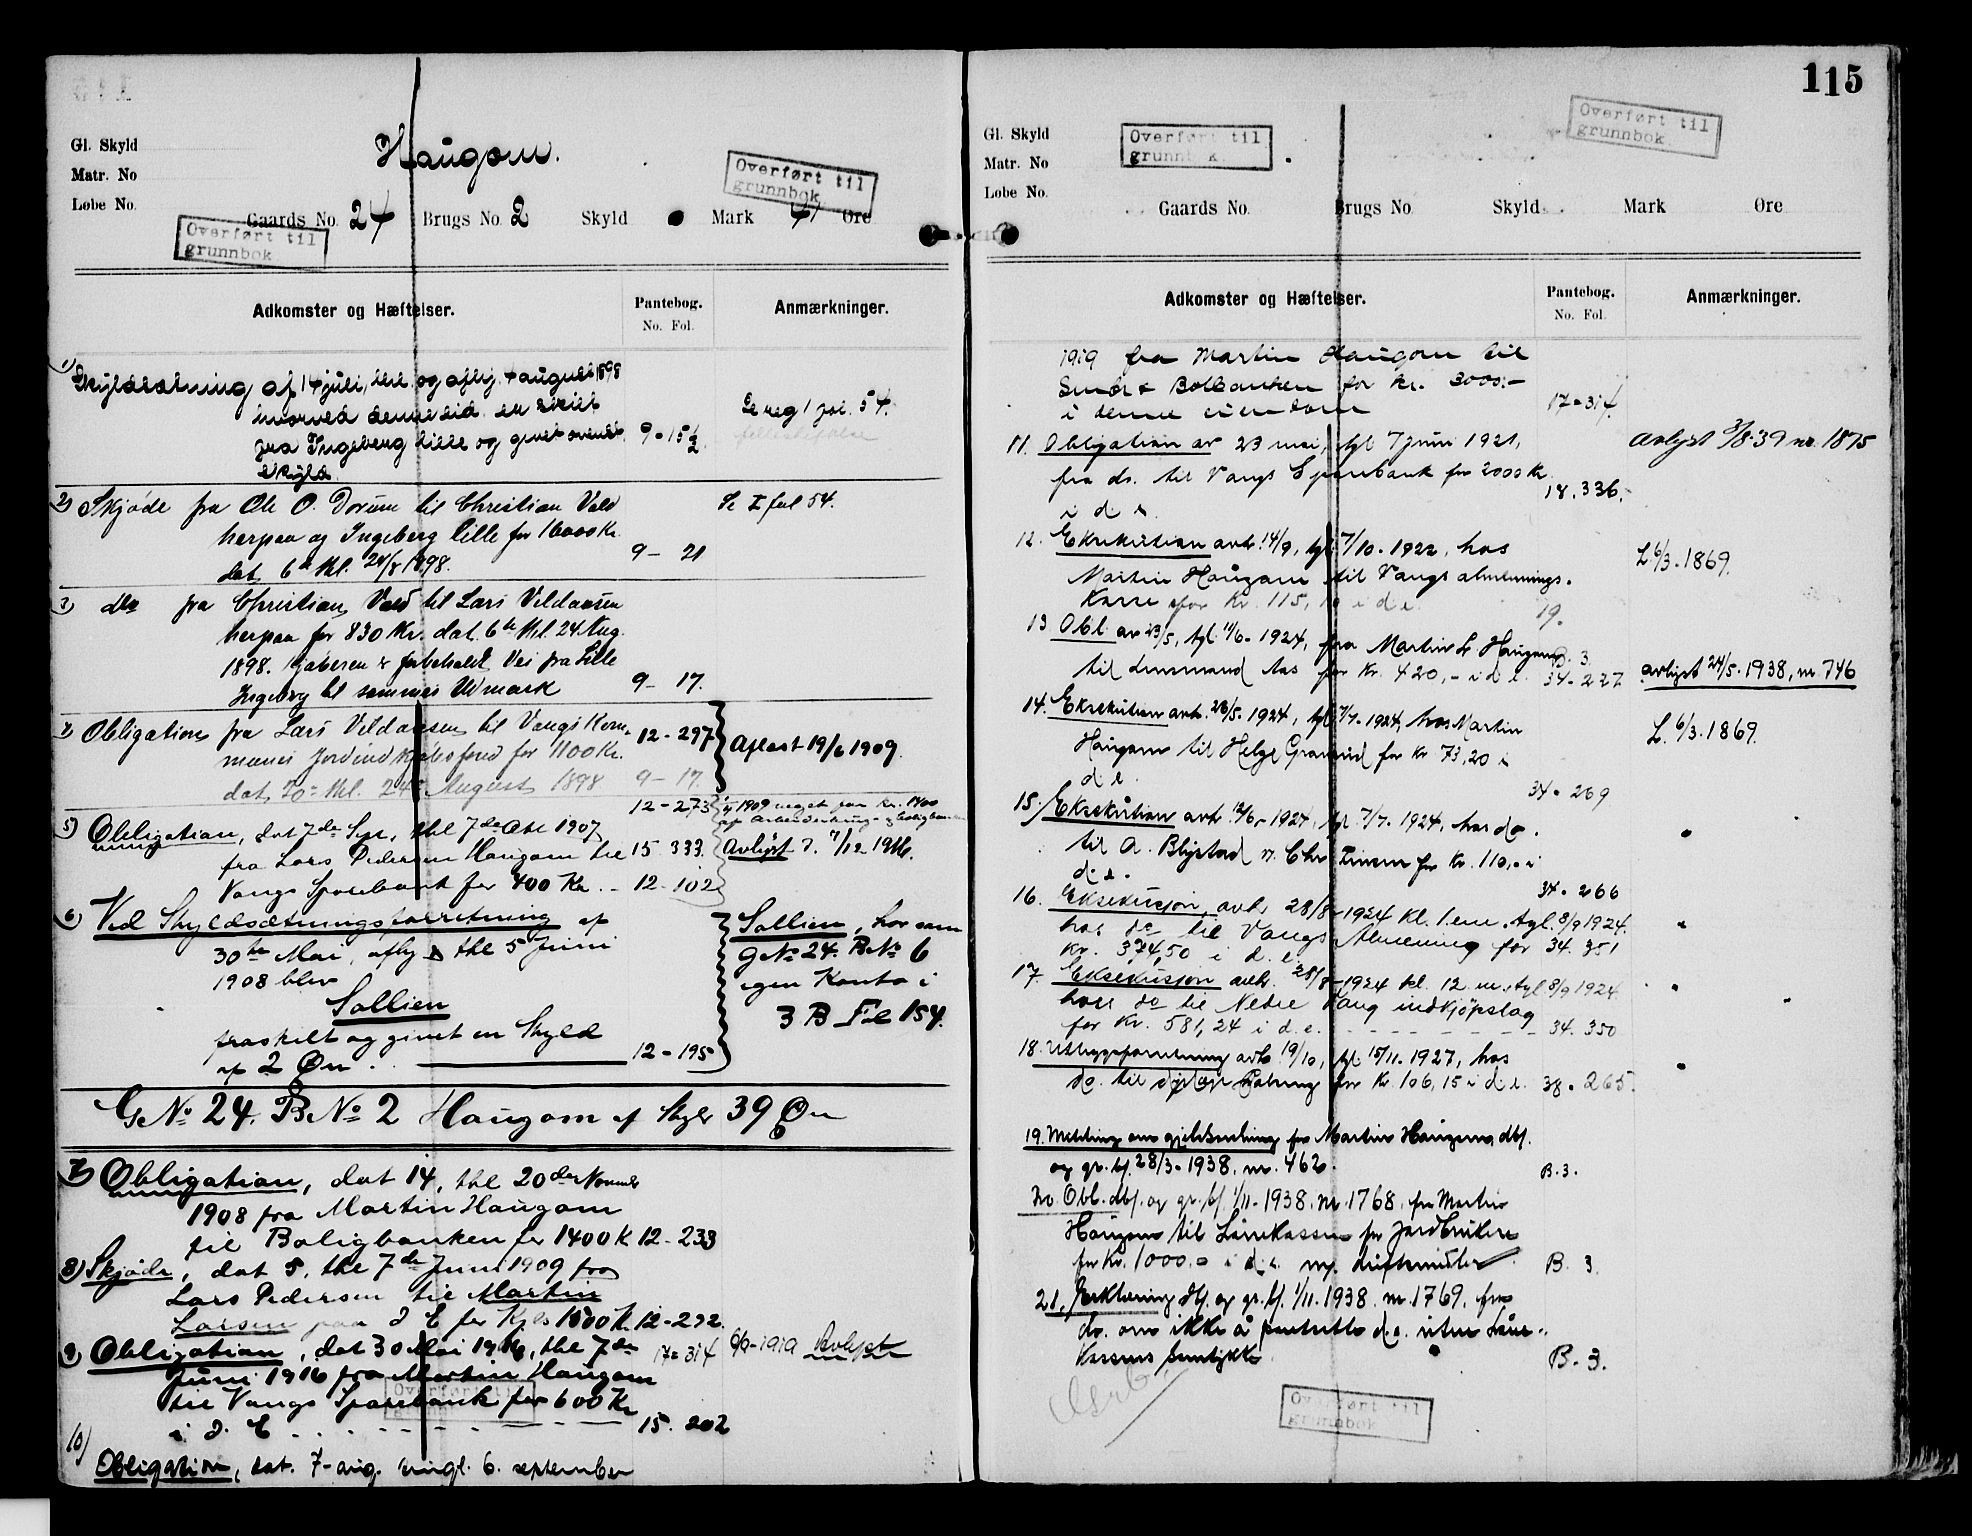 115
Gl. Skyld
Matr. No
Løbe No.
Haugom.
Overført til
grunnbok
Gaards No. 24 Brugs No. 2 Skyld Mark 41 Øre
Overført til
grunnbok
Adkomster og Hæftelser.
Pantebog.
No. Fol.
Anmærkninger.
1) Skyldsætning af 14 juli, thl. og aflj. 4 august 1898
hvorved denne eid. er skilt
fra Ingeberg lille og givet ovenst. 9-15½
Skyld
Se reg 1 fol. 54.
2) Skjøde fra Ole O. Dorum til Christian Vold
herpaa og Ingeberg lille for 16000 Kr.
dat. 6te thl. 24/8 1898. 9- 21
Se I fol 54.
3) do fra Christian Vold til Lars Vildaasen
herpaa for 830 Kr. dat. 6te thl. 24 Aug.
1898. Kjøberen er forbeholdt Vei fra Lille
Ingeberg til sammes Udmark 9- 17.
4) Obligation fra Lars Vildaasen til Vangs Kom- 12-297
munes Jordindkjøbsfond for 1100 Kr.
dat. 20de thl. 24de August 1898 9- 17.
Aflæst 19/6 1909.
12-273
5) Obligation, dat 7de Sept, thl 7de Okt 1907
fra Lars Pedersen Haugom til 15. 333.
Vangs Sparebank for 400 Kr. - 12-102
Avlyst d. 7/12 1916.
6) Ved Skyldsætningsforretning af
30te Mai, aflj & thl 5 Juni
1908 blev
Sollien
fraskilt og givet en Skyld
af 2 Øre. 12-195
Sollien, har som
GNo 24. BNo 6
egen Konto i
3 B Fol 154.
GNo 24. BNo 2 Haugom af Skyld 39 Øre
7) Obligation, dat 14, thl 20de Novmbr
1908 fra Martin Haugom
til Boligbanken for 1400 K 12-233
8) Skjøde, dat 5, thl 7de Juni 1909 fra
Lars Pedersen til Martin
Larsen paa d E for Kjøbs 1500 K. 12-292.
9) Obligation, dat 30 Mai 1916, thl 7de 17-314
Juni 1916 fra Martin Haugom
til Vangs Sparebank for 600 Kr
i d. E 15. 202
6/9-1919 Avlyst
Overført til
grunnbok
10) Obligation, dat. 7-aug. tingl. 6. september
Gl. Skyld
Matr. No
Løbe No.
Overført til
Overført til
grunnbok
Gaards No. Brugs No Skyld Mark Øre
Adkomster og Hæftelser.
Pantebog.
No. Fol.
Anmærkninger.
1919 fra Martin Haugom til
for kr. 3000,-
i denne eiendom 17-314.
11. Obligation av 23 mai, tgl 7 juni 1921,
fra ds. til Vangs Sparebank for 2000 Kr
i d e. 18.336.
avlyst 3/8-39 nr. 1875
12. Eksekution avh. 14/9, tgl. 7/10-1922, hos
Martin Haugom til Vangs almennings-
Kasse for Kr. 115,10 i d e. 19.
L 6/3-1869.
13. Obl. av 23/5, tgl. 11/6-1924, fra Martin L Haugom B. 3
til lensmand Aas for Kr. 420,- i d e. 34-227
avlyst 24/5-1938, nr. 746
14. Eksekution avh. 28/5-1924, tgl. 7/7-1924, hos Martin
Haugom til Helge for Kr 73,20 i
d. e. 34-269
L. 6/3-1869.
15. Eksekution avh. 12/6-1924, tgl 7/7-1924, hos do.
til A. Blystad v. Chr for Kr. 110,- i
d. e. 34-266
"
16. Eksekusjon, avh. 28/8-1924 kl. 1 em. tgl. 8/9 1924.
hos do til Vangs Almenning for 34. 351
kr. 374,50 i d. e.
"
17. Eksekusjon avh. 28/8-1924 kl. 12 m., tgl 8/9 1924
hos do til Nedre Vang indkjøpslag
for Kr. 581,24 i d. e. 34. 350
"
18. Utlægsforretning avh. 19/10, tgl. 15/11-1927, hos
do. til for Kr. 106,15 i d. e. 38-265.
"
19. Melding om gjeldsordning for Martin Haugom, dbf.
og gr. bf. 28/3-1938, nr. 462. B.3.
20. Obl. dbf. og gr. bf. 1/11-1938. nr. 1768, fra Martin
Haugom til Lånekassen for Jordbrukere
for Kr. 1000,- i d. e. m. driftsmidler. B. 3.
21. Erklæring dbf. og gr. bf. 1/11.1938. nr. 1769. fra
do. om ikke å pantsette d. e. uten Låne-
kassens samtykke. B. 3.
Overført til
grunnbok